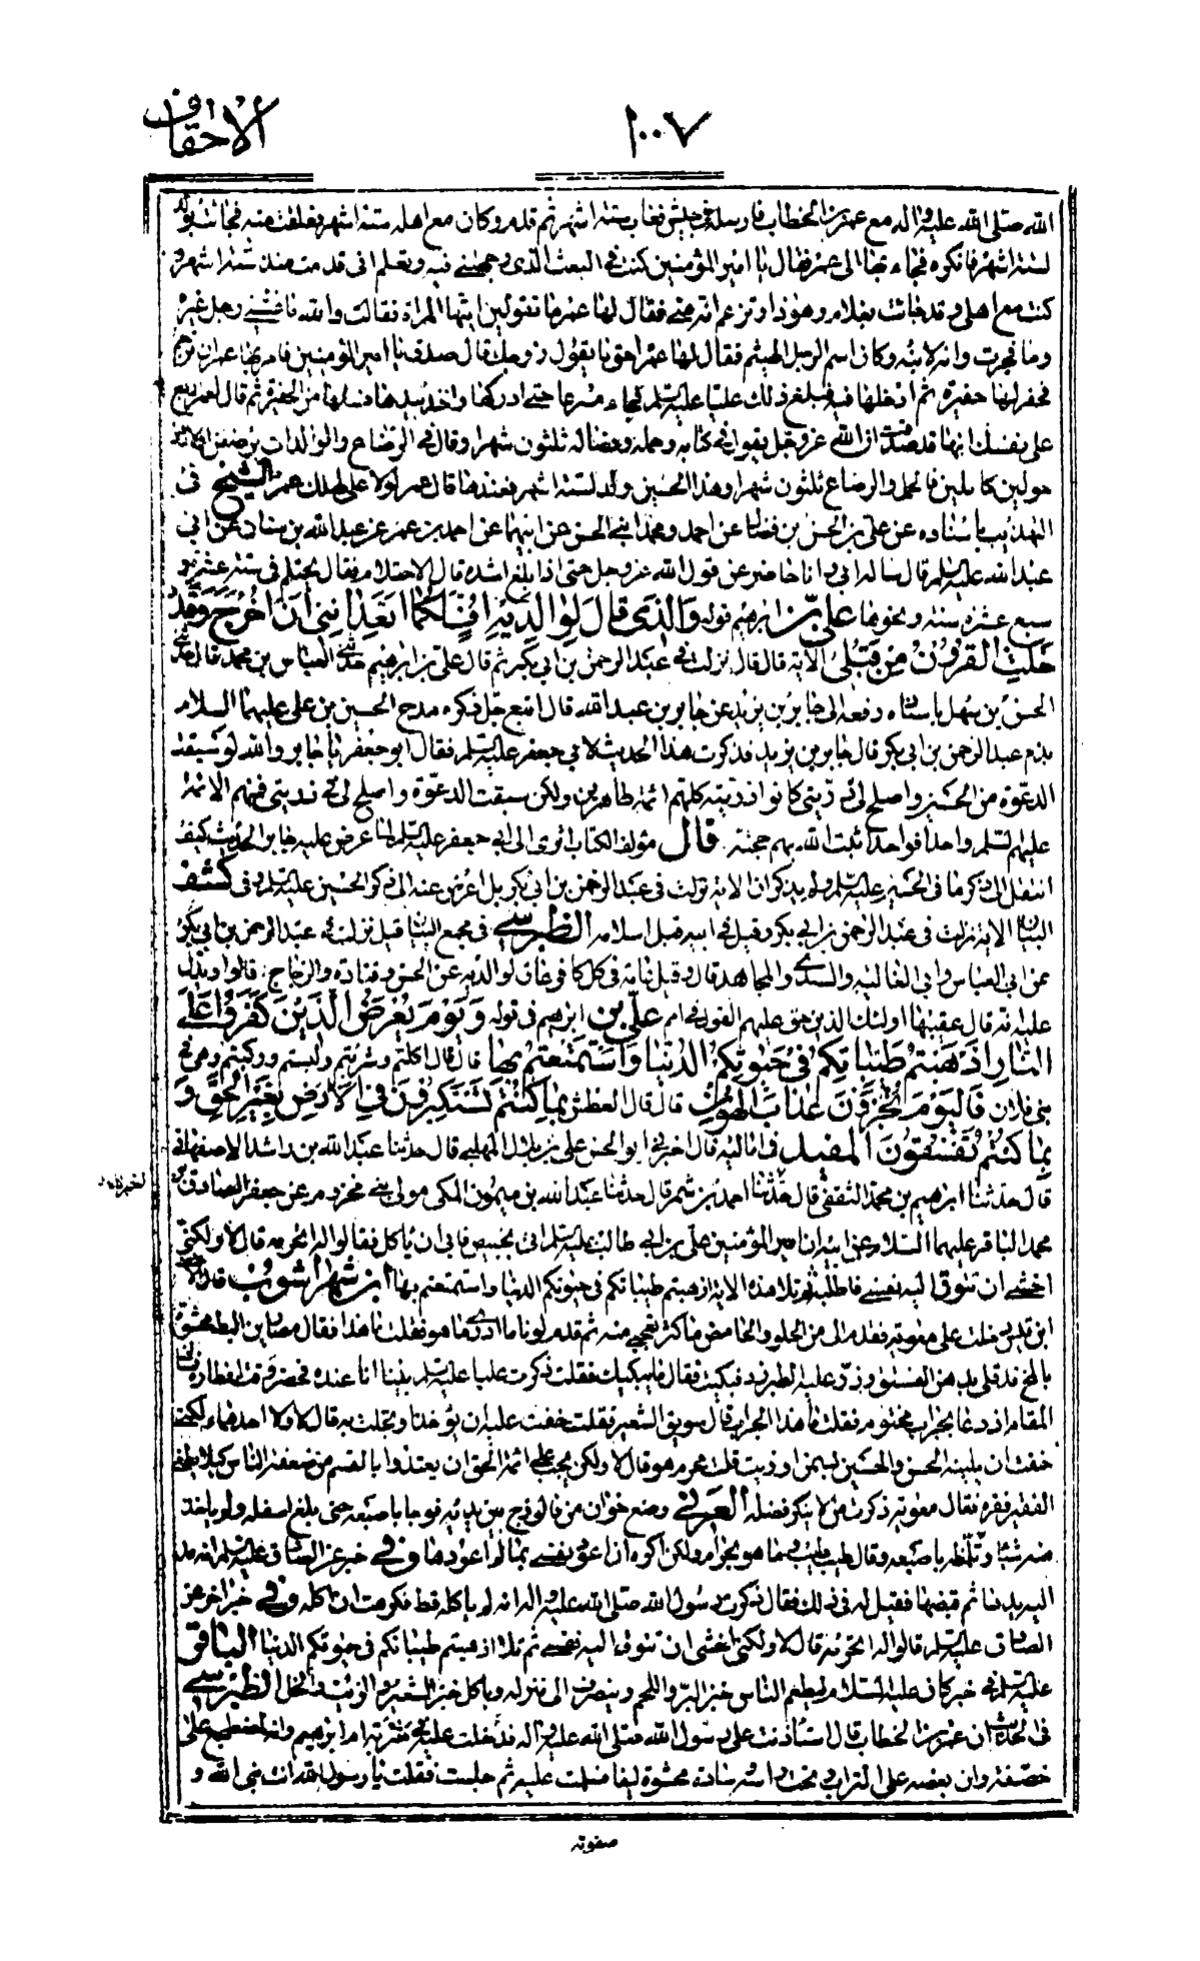 الاحقاف
١٠٠٧
الله صلى الله عليه واله مع عمر بن الخطاب فارسله في جيش فغاب ستة اشهر ثم قدم وكان مع اهله ستة اشهر فعلقت منه فجاءت بولد
لستة اشهر فانكره فجاء بها الى عمر فقال يا امير المؤمنين كنت في البعث الذى وجهتنى فيه وتعلم انى قدمت منذ ستة اشهر و
كنت مع اهلى وقد جاءت بغلام وهو ذا وتزعم انه منى فقال لها عمر ما تقولين ايتها المراة فقالت والله ما غشينى رجل غيره
وما فجرت وانه لابنه وكان اسم الرجل الهيثم فقال لها عمر احق ما يقول زوجك قال صدق يا امير المؤمنين فامر بها عمر ان ترجم
فحفر لها حفيرة ثم ادخلها فيه فبلغ ذلك عليا عليه السلم فجاء مسرعا حتى ادركها واخذ بيدها فسلها من الحفيرة ثم قال لعمر اربع
على نفسك انها قد صدقت ان الله عز وجل يقول في كتابه وحمله وفصاله ثلثون شهرا وقال في الرضاع والوالدات يرضعن اولادهن
حولين كاملين فالحمل والرضاع ثلثون شهرا وهذا الحسين ولد لستة اشهر فعندها قال عمر لولا على لهلك عمر الشيخ فى
التهذيب باسناده عن على بن الحسن بن فضال عن احمد ومحمد ابنى الحسن عن ابيهما عن احمد بن عمر عن عبد الله بن سنان عن ابى
عبد الله عليه السلم قال ساله ابى وانا حاضر عن قول الله عز وجل حتى اذا بلغ اشده قال الاحتلام فقال يحتلم فى ستة عشر و
سبع عشرة سنة ونحوها على بن ابرهيم قوله والذى قال لوالديه اف لكما اتعداننى ان اخرج وقد
خلت القرون من قبلى الاية قال قال نزلت فى عبد الرحمن بن ابى بكر ثم قال على بن ابرهيم حدثنى العباس بن محمد قال حدثنى
الحسن بن سهل باسناده رفعه الى جابر بن يزيد عن جابر بن عبد الله قال اتبع جل ذكره مدح الحسين بن على عليهما السلام
بذم عبد الرحمن بن ابى بكر قال جابر بن يزيد فذكرت هذا الحديث لابى جعفر عليه السلم فقال ابو جعفر يا جابر والله لو سبقت
الدعوة من الحسين واصلح لى ذريتى كانوا ذريته كلهم ائمة طاهرين ولكن سبقت الدعوة واصلح لى فى ذريتى فمنهم الائمة
عليهم السلم واحدا فواحدا ثبت الله بهم حجته قال مؤلف الكتاب انرى الى ابى جعفر عليه السلم لما عرض عليه جابر الحديث كيف
انتقل الى ذكر ما فى الحسين عليه السلم ولم يذكر ان الاية نزلت فى عبد الرحمن بن ابى بكر بل اعرض عنه الى ذكر الحسين عليه السلم وفى كشف
البيان الاية نزلت فى عبد الرحمن بن ابى بكر وقيل فى ابيه قبل اسلامه الطبرسى فى مجمع البيان قيل نزلت فى عبد الرحمن بن ابى بكر
عن ابى العباس وابى العالية والسدى والمجاهد قال وقيل الاية فى كل كافر عاق لوالديه عن الحسن وقتادة والزجاج قالوا ويدل
عليه انه قال عقيبها اولئك الذين حق عليهم القول فى امم على بن ابرهيم فى قوله ويوم يعرض الذين كفروا على
النار اذهبتم طيباتكم فى حيوتكم الدنيا واستمتعتم بها قال قال اكلتم وشربتم ولبستم وركبتم وهى فى
بنى فلان فاليوم تجزون عذاب الهون قال قال العطش بما كنتم تستكبرون فى الارض بغير الحق و
بما كنتم تفسقون المفيد فى اماليه قال اخبرنى ابو الحسن على بن بلال المهلبى قال حدثنا عبد الله بن راشد الاصفهانى
قال حدثنا ابرهيم بن محمد الثقفى قال حدثنا احمد بن شمر قال حدثنا عبد الله بن ميمون المكى مولى بنى مخزوم عن جعفر الصادق بن
محمد الباقر عليهما السلام عن ابيه ان امير المؤمنين على بن ابى طالب عليه السلم اتى بخبيص فابى ان ياكل فقالوا له اتحرمه قال لا ولكنى
اخشى ان تتوق اليه نفسى فاطلبه ثم تلا هذه الاية اذهبتم طيباتكم فى حيوتكم الدنيا واستمتعتم بها ابن شهراشوب قال
ابن قيس دخلت على معوية فقدم الى من الحلو والحامض ما كثر تعجبى منه ثم قدم لونا ما ادرى ما هو فقلت ما هذا فقال مصارين البط محشوة
بالمخ قد قلى بدهن الفستق وذر عليه الطبرزد فبكيت فقال ما يبكيك فقلت ذكرت عليا عليه السلم بينا انا عنده فحضر وقت افطاره
المقام اذ دعا بجراب مختوم فقلت ما هذا الجراب قال سويق الشعير فقلت خفت عليه ان يؤخذ او بخلت به قال لا ولا احدهما ولكنى
خفت ان يلينه الحسن والحسين بسمن او زيت قلت محرم هو قال لا ولكن يجب على ائمة الحق ان يعتدوا بالقسم من ضعفة الناس كيلا يطغى
الفقير فقره فقال معوية ذكرت من لا ينكر فضله العرنى وضع خوان من فالوذج بين يديه فوجا باصبعه حتى بلغ اسفله ولم ياخذ
منه شيئا وتلمظ باصبعه وقال طيب طيب وما هو بحرام ولكن اكره ان اعود نفسى بما لم اعودها وفى خبر عن الصادق عليه السلم انه مد
اليه يده ثم قبضها فقيل له فى ذلك فقال ذكرت رسول الله صلى الله عليه واله انه لم ياكله قط فكرهت ان اكله وفى خبر اخر عن
الصادق عليه السلم قالوا له اتحرمه قال لا ولكنى اخشى ان تتوق اليه نفسى ثم تلا اذهبتم طيباتكم فى حيوتكم الدنيا الباقر
عليه السلم فى خبر كان عليه السلام ليطعم الناس خبز البر واللحم وينصرف الى منزله وياكل خبز الشعير والزيت والخل الطبرسى
فى الحديث ان عمر بن الخطاب قال استاذنت على رسول الله صلى الله عليه واله فدخلت عليه فى مشربة ام ابرهيم وانه لمضطجع على
خصفة وان بعضه على التراب وتحت راسه وسادة محشوة ليفا فسلمت عليه ثم جلست فقلت يا رسول الله انت نبى الله و
صفوته